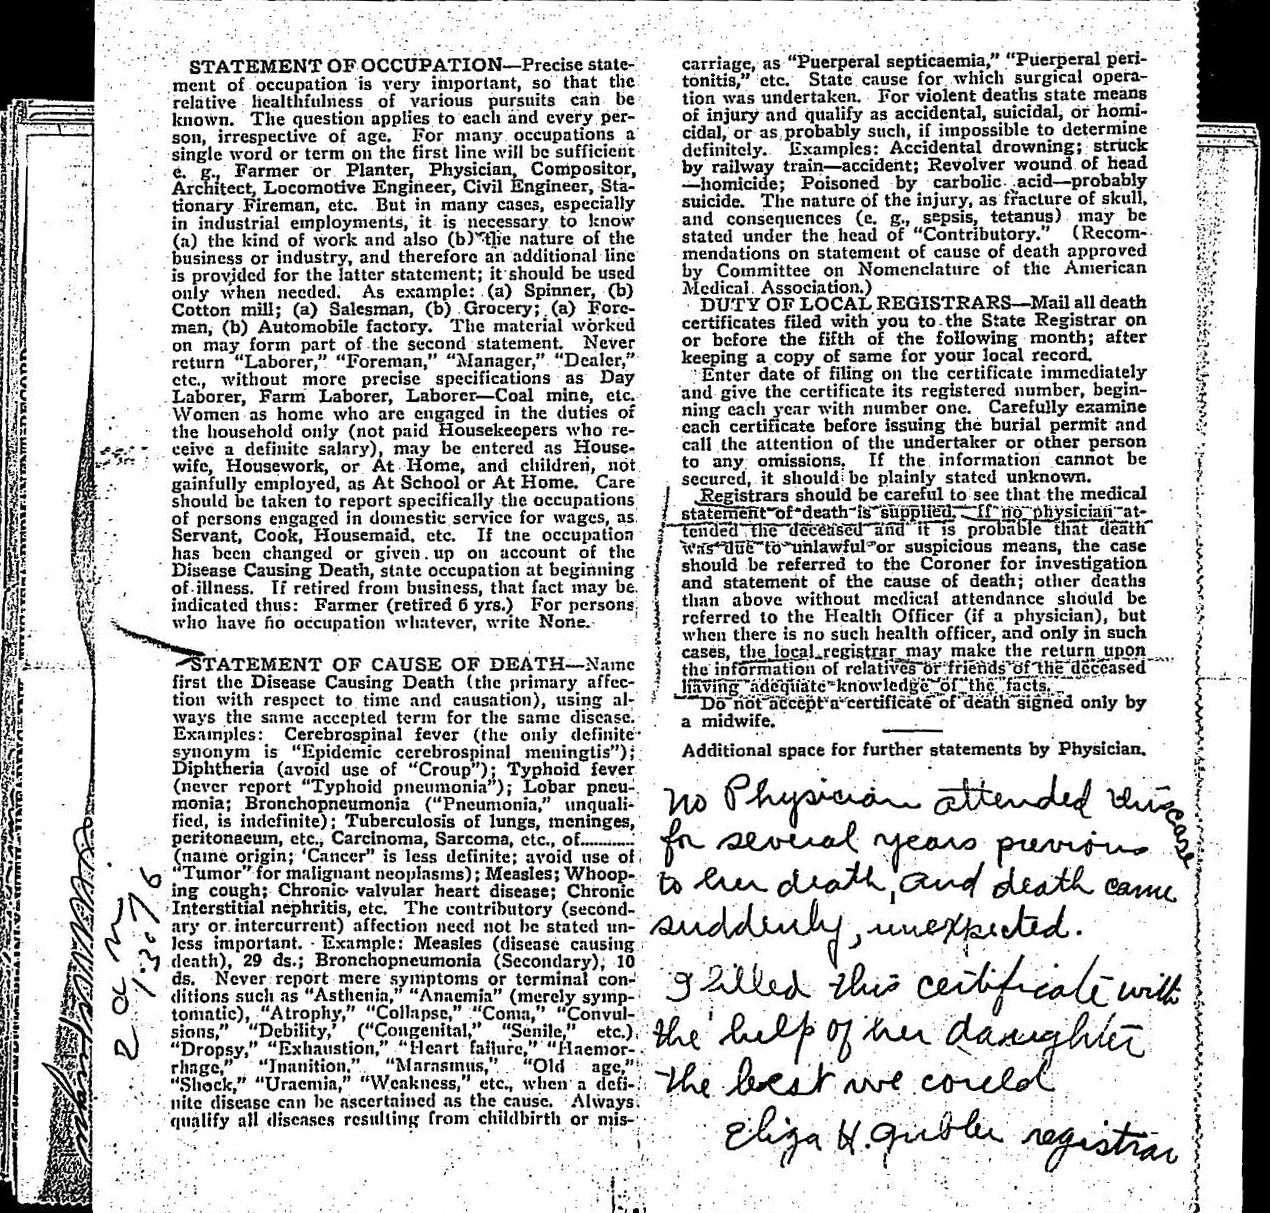 STATEMENT OF OCCUPATION—Precise state-
ment of occupation is very important, so that the
relative healthfulness of various pursuits can be
known. The question applies to each and every per-
son, irrespective of age. For many occupations a
single word or term on the first line will be sufficient
e. g., Farmer or Planter, Physician, Compositor,
Architect, Locomotive Engineer, Civil Engineer, Sta-
tionary Fireman, etc. But in many cases, especially
in industrial employments, it is necessary to know
(a) the kind of work and also (b) the nature of the
business or industry, and therefore an additional line
is provided for the latter statement; it should be used
only when needed. As example: (a) Spinner, (b)
Cotton mill; (a) Salesman, (b) Grocery; (a) Fore-
man, (b) Automobile factory. The material worked
on may form part of the second statement. Never
return "Laborer," "Foreman," "Manager," "Dealer,"
etc., without more precise specifications as Day
Laborer, Farm Laborer, Laborer—Coal mine, etc.
Women as home who are engaged in the duties of
the household only (not paid Housekeepers who re-
ceive a definite salary), may be entered as House-
wife, Housework, or At Home, and children, not
gainfully employed, as At School or At Home. Care
should be taken to report specifically the occupations
of persons engaged in domestic service for wages, as
Servant, Cook, Housemaid, etc. If tne occupation
has been changed or given up on account of the
Disease Causing Death, state occupation at beginning
of illness. If retired from business, that fact may be
indicated thus: Farmer (retired 6 yrs.) For persons
who have no occupation whatever, write None.
STATEMENT OF CAUSE OF DEATH—Name
first the Disease Causing Death (the primary affec-
tion with respect to time and causation), using al-
ways the same accepted term for the same disease.
Examples: Cerebrospinal fever (the only definite
synonym is "Epidemic cerebrospinal meningtis");
Diphtheria (avoid use of "Croup"); Typhoid fever
(never report "Typhoid pneumonia"); Lobar pneu-
monia; Bronchopneumonia ("Pneumonia," unquali-
fied, is indefinite); Tuberculosis of lungs, meninges,
peritonaeum, etc., Carcinoma, Sarcoma, etc., of...........
(name origin; 'Cancer" is less definite; avoid use of
"Tumor" for malignant neoplasms); Measles; Whoop-
ing cough; Chronic valvular heart disease; Chronic
Interstitial nephritis, etc. The contributory (second-
ary or intercurrent) affection need not be stated un-
less important. Example: Measles (disease causing
death), 29 ds.; Bronchopneumonia (Secondary), 10
ds. Never report mere symptoms or terminal con-
ditions such as "Asthenia," "Anaemia" (merely symp-
tomatic), "Atrophy," "Collapse," "Coma," "Convul-
sions," "Debility," ("Congenital," "Senile," etc.)
"Dropsy," "Exhaustion," "Heart failure," "Haemor-
rhage," "Inanition," "Marasmus," "Old age,"
"Shock," "Uraemia," "Weakness," etc., when a defi-
nite disease can be ascertained as the cause. Always
qualify all diseases resulting from childbirth or mis-
carriage, as "Puerperal septicaemia," "Puerperal peri-
tonitis," etc. State cause for which surgical opera-
tion was undertaken. For violent deaths state means
of injury and qualify as accidental, suicidal, or homi-
cidal, or as probably such, if impossible to determine
definitely. Examples: Accidental drowning; struck
by railway train—accident; Revolver wound of head
—homicide; Poisoned by carbolic acid—probably
suicide. The nature of the injury, as fracture of skull,
and consequences (e. g., sepsis, tetanus) may be
stated under the head of "Contributory." (Recom-
mendations on statement of cause of death approved
by Committee on Nomenclature of the American
Medical Association.)
DUTY OF LOCAL REGISTRARS—Mail all death
certificates filed with you to the State Registrar on
or before the fifth of the following month; after
keeping a copy of same for your local record.
Enter date of filing on the certificate immediately
and give the certificate its registered number, begin-
ning each year with number one. Carefully examine
each certificate before issuing the burial permit and
call the attention of the undertaker or other person
to any omissions. If the information cannot be
secured, it should be plainly stated unknown.
Registrars should be careful to see that the medical
statement of death is supplied. If no physician at-
tended the deceased and it is probable that death
was due to unlawful or suspicious means, the case
should be referred to the Coroner for investigation
and statement of the cause of death; other deaths
than above without medical attendance should be
referred to the Health Officer (if a physician), but
when there is no such health officer, and only in such
cases, the local registrar may make the return upon
the information of relatives or friends of the deceased
having adequate knowledge of the facts.
Do not accept a certificate of death signed only by
a midwife.
Additional space for further statements by Physician.
no Physician attended this case
for several years previous
to her death, and death came
suddenly, unexpected.
I filled this certificate with
the help of her daughter
the best we could
Eliza H. Gubler registrar
2 a m